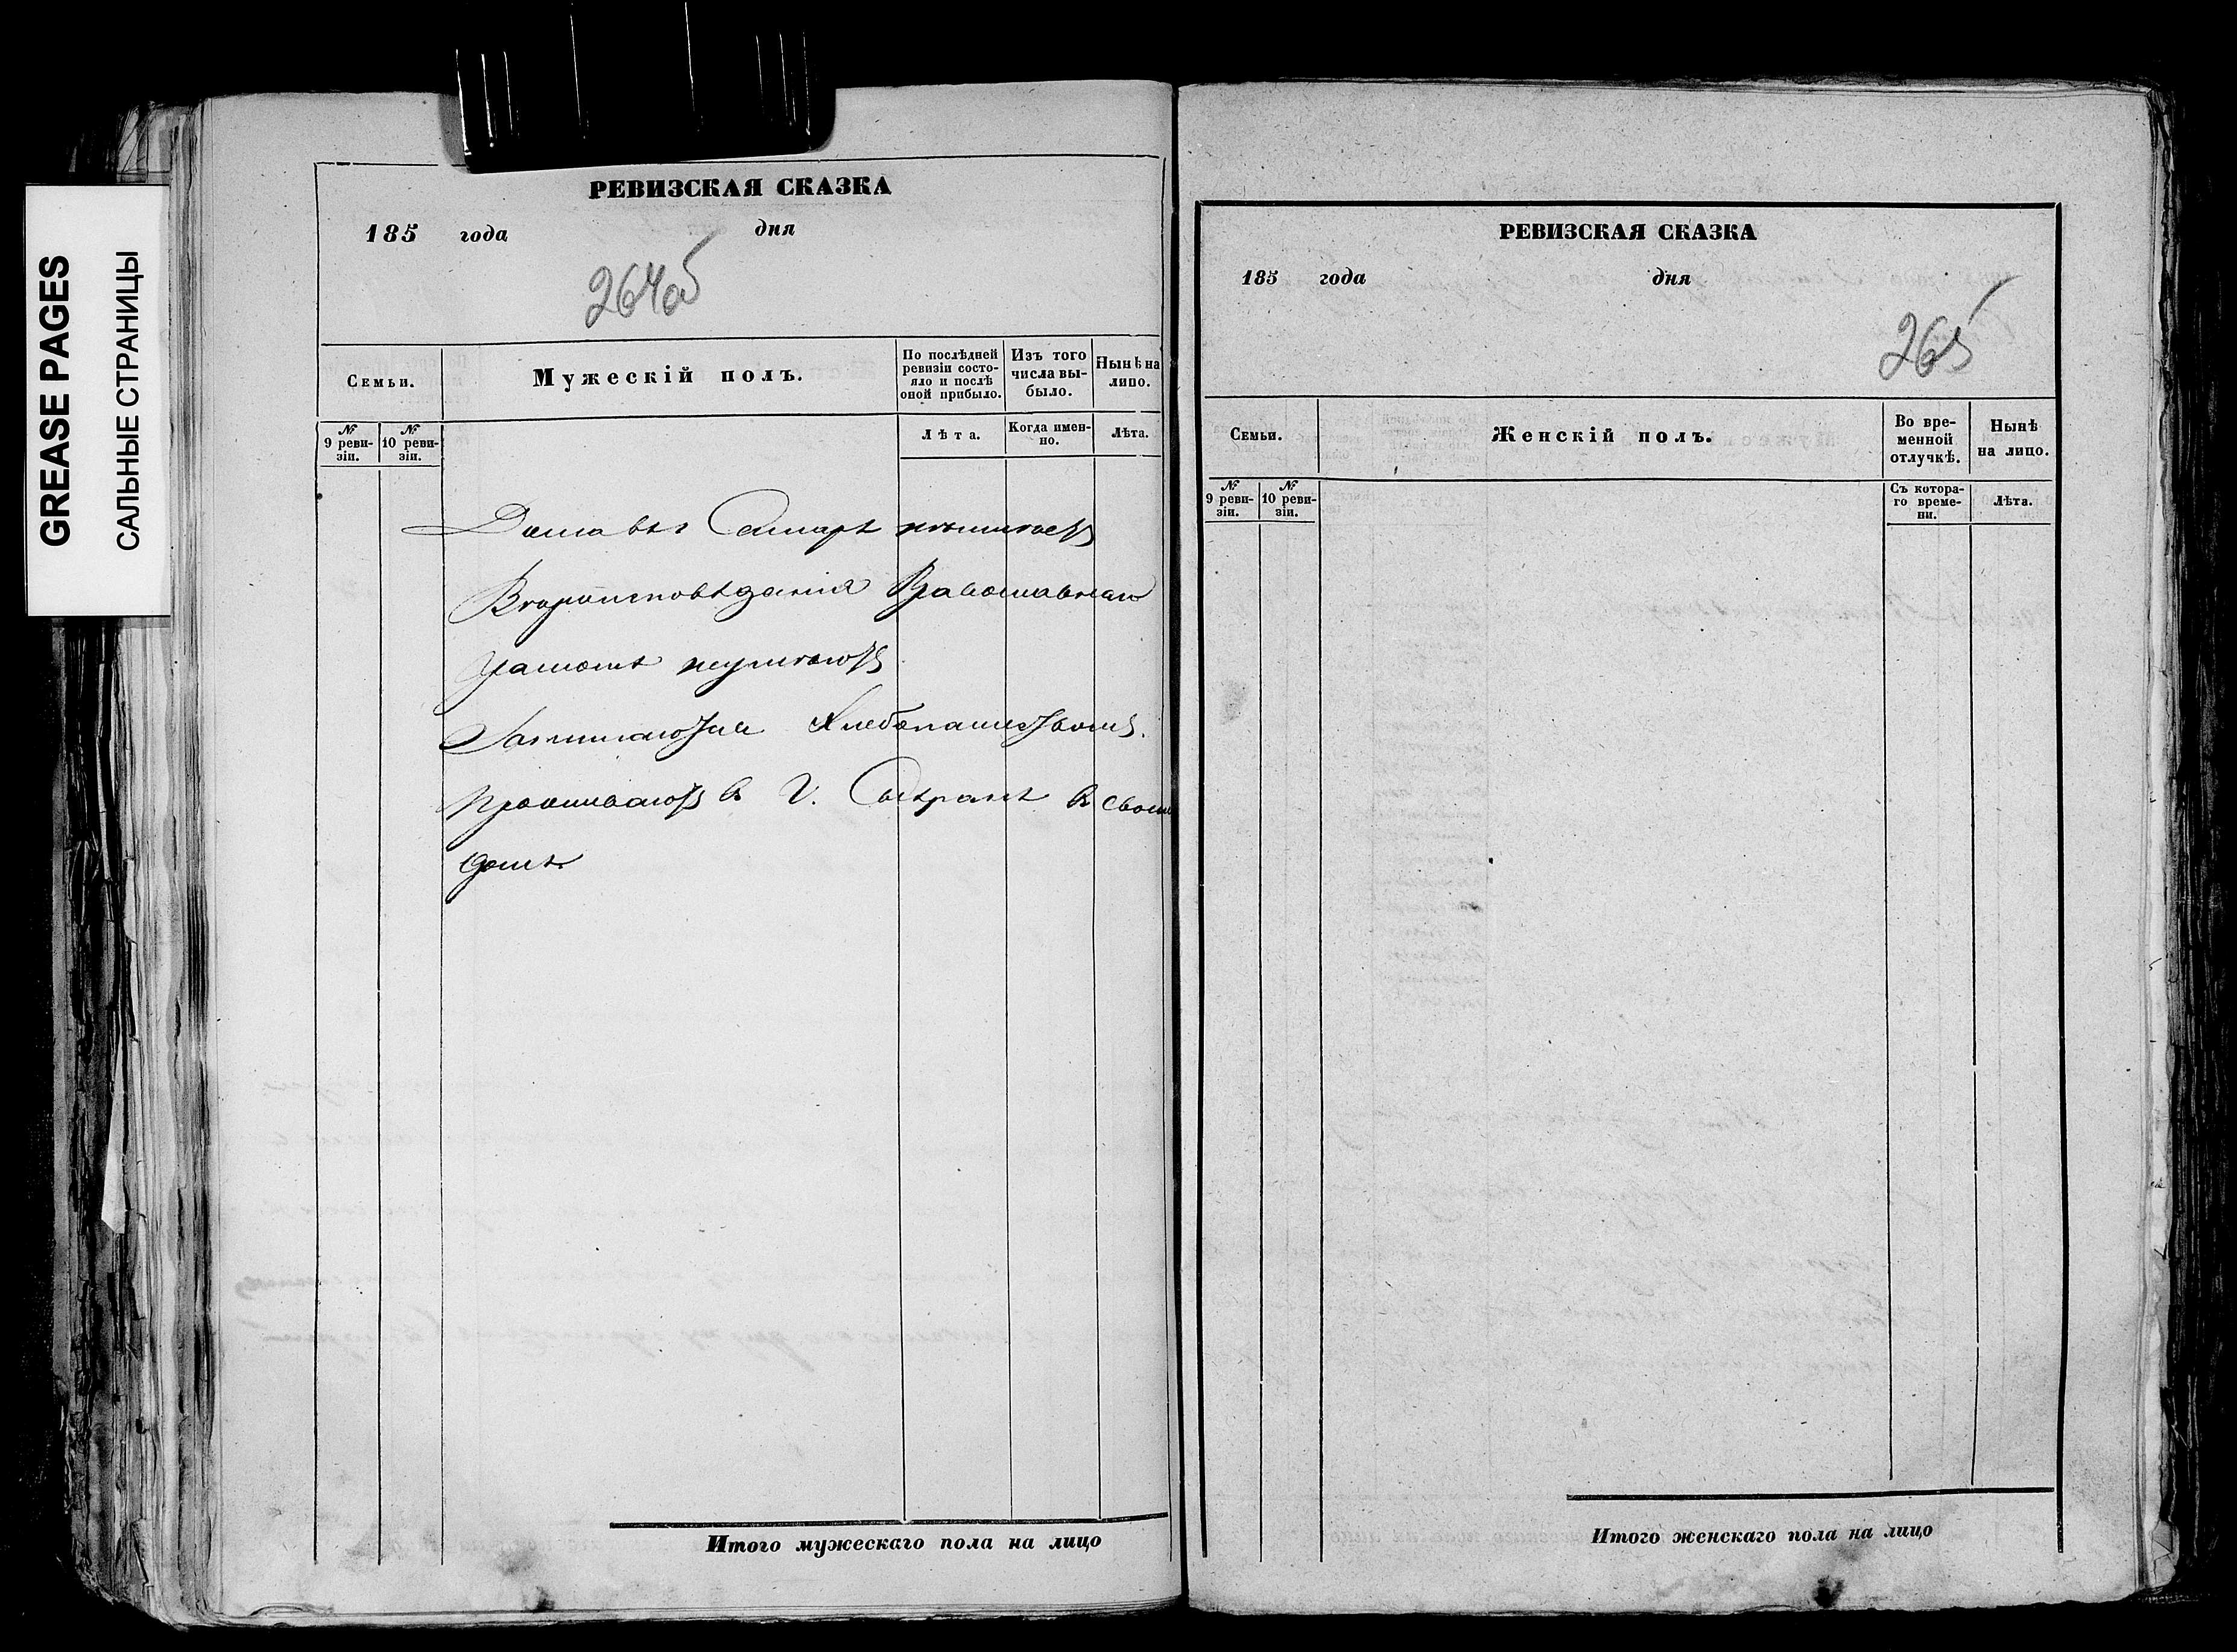 GREASE PAGES
САЛЬНЫЕ СТРАНИЦЫ
РЕВИЗСКАЯ СКАЗКА
185 года дня
264об
Семьи.
Мужескій полъ.
По послѣдней ревизіи состояло и послѣ оной прибыло.
Изъ того числа выбыло.
Нынѣ на лицо.
№ 9 ревизіи.
№ 10 ревизіи.
Лѣта.
Когда именно.
Лѣта.
Дома въ г Самарѣ неимеетъ
Вероисповѣданія Православнаго
Грамоте
Занимаются Хлебопашествомъ.
Проживаютъ в г. Сызранѣ в своем
доме
Итого мужескаго пола на лицо
РЕВИЗСКАЯ СКАЗКА
185 года дня
265
Семьи.
Женскій полъ.
Во временной отлучкѣ.
Нынѣ на лицо.
№ 9 ревизіи.
№ 10 ревизіи.
Съ котораго времени.
Лѣта.
Итого женскаго пола на лицо